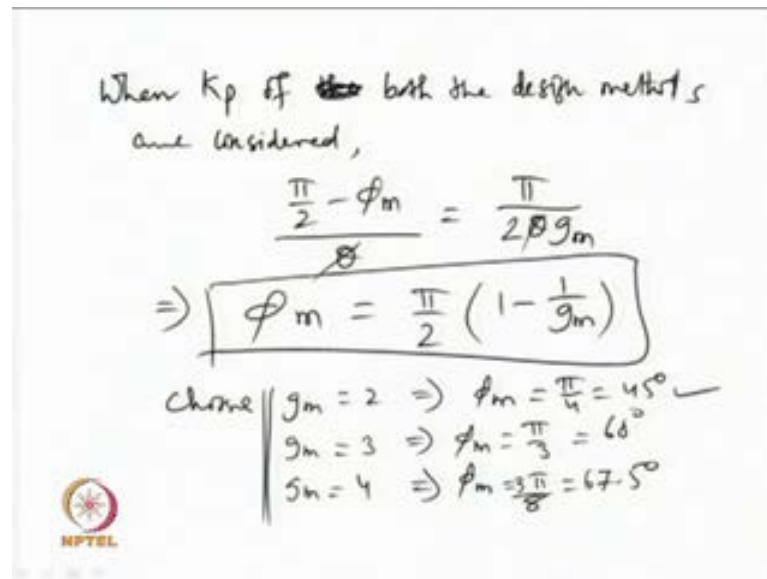 When Kp of both the design methods
are considered,
π/2 - φm / θ = π / 2θ gm
⇒ φm = π/2 (1 - 1/gm)
Choose gm = 2 ⇒ φm = π/4 = 45° ✓
gm = 3 ⇒ φm = π/3 = 60°
gm = 4 ⇒ φm = 3π/8 = 67.5°
NPTEL